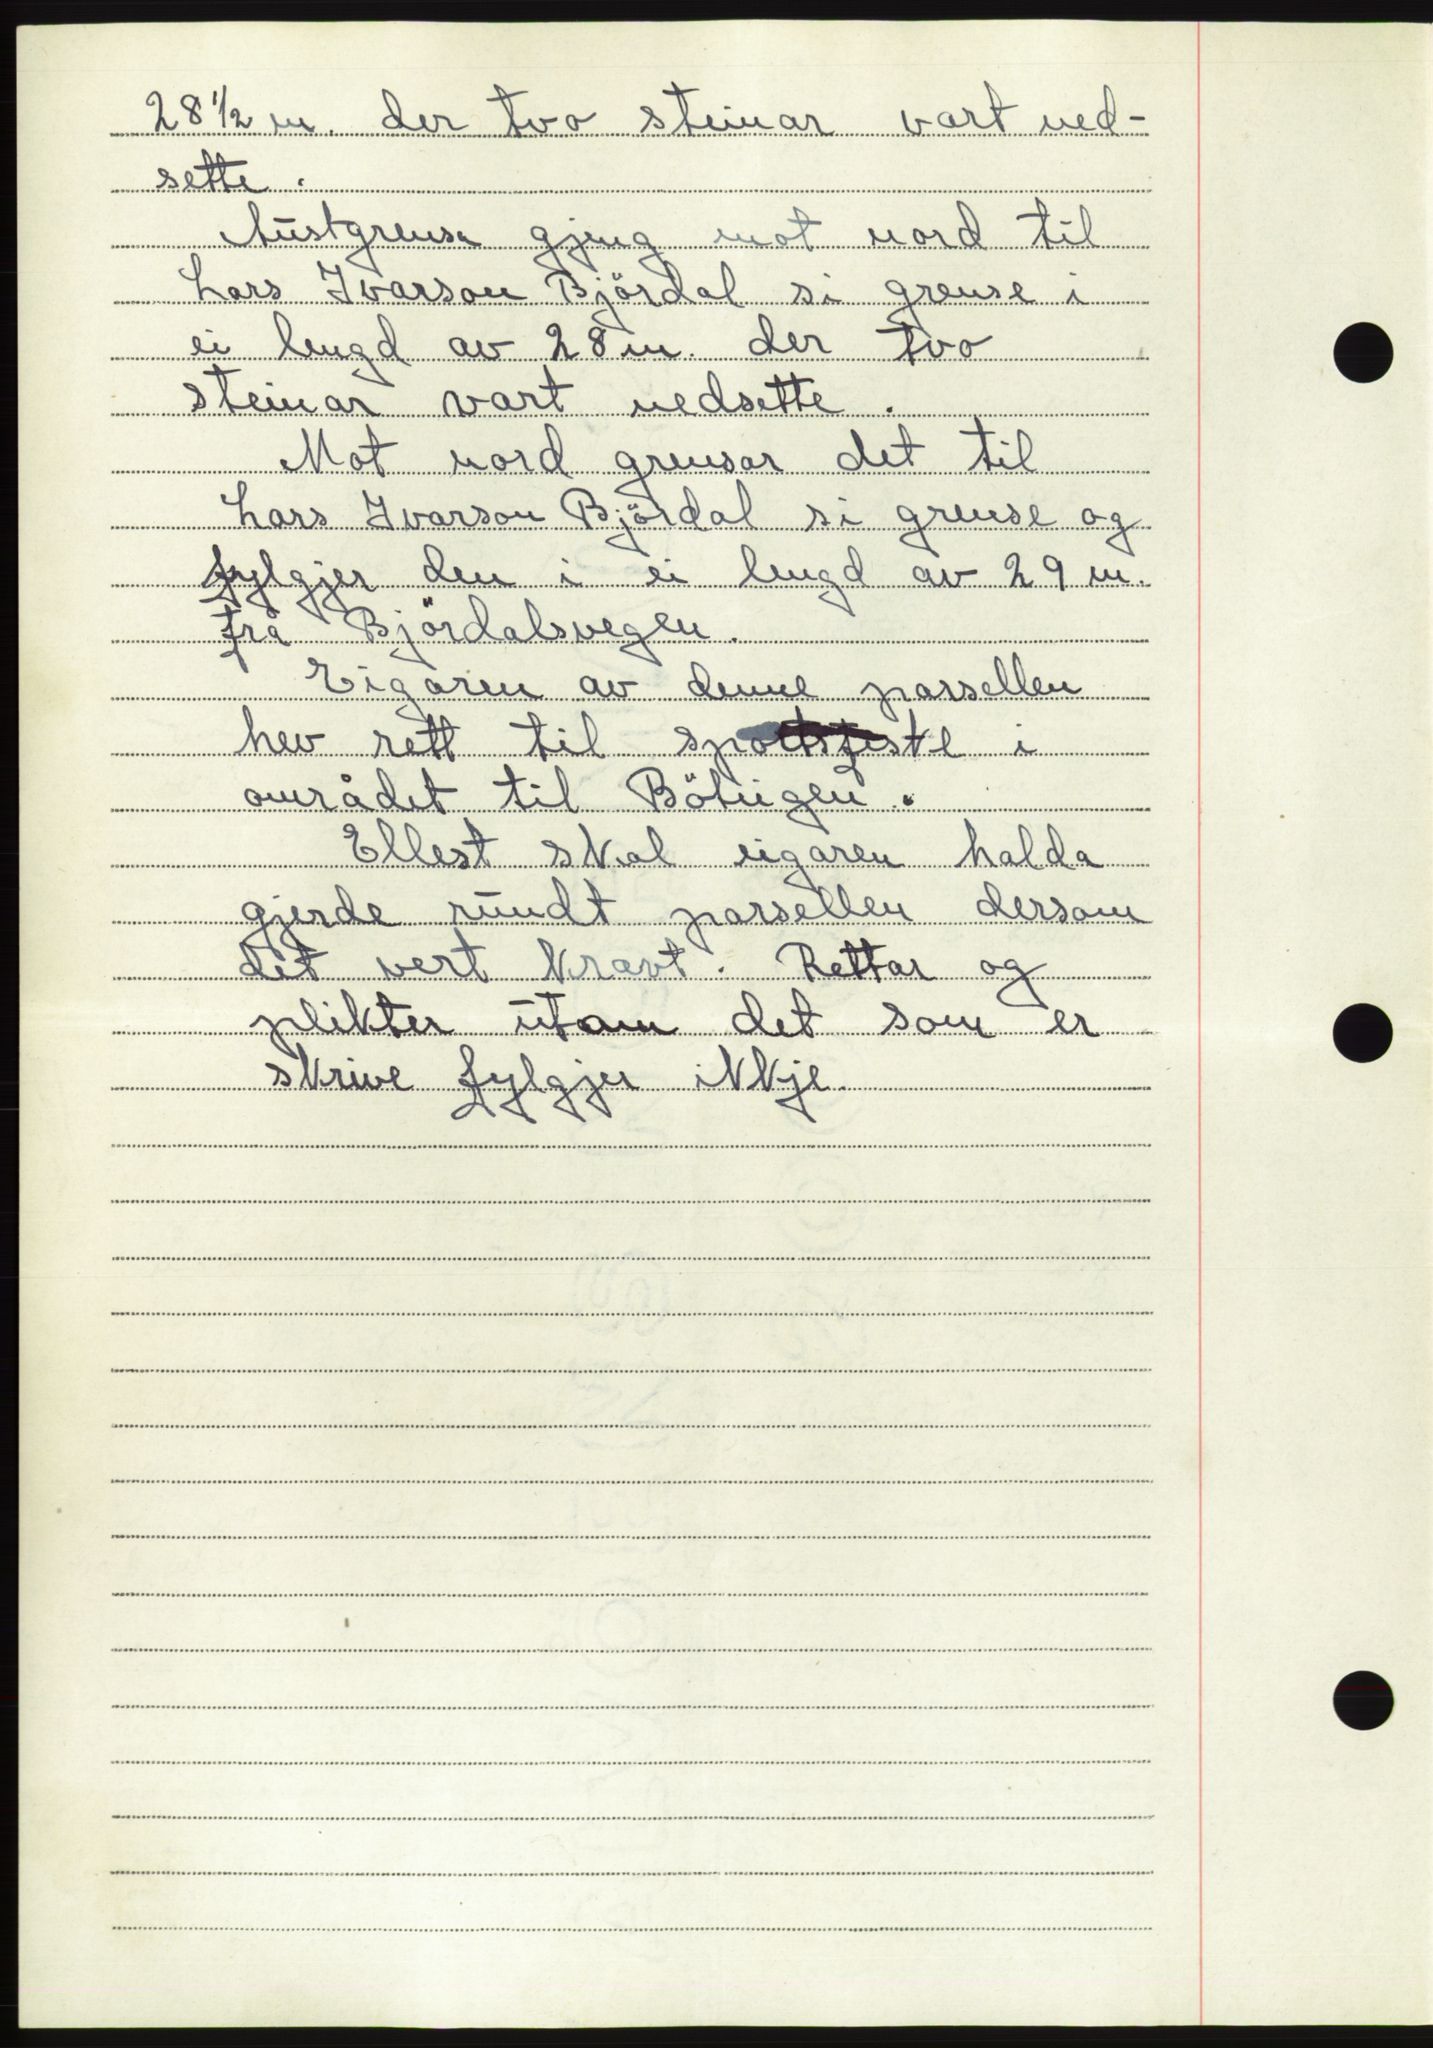 28 1/2 m. der tvo steinar vart ned-
sette.
Austgrensa gjeng mot nord til
Lars Ivarson Björdal si grense i
ei lengd av 28 m. der tvo
steinar vart nedsette.
Mot nord grensar det til
Lars Ivarson Björdal si grense og
fylgjer den i ei lengd av 29 m.
frå Björdalsvegen.
Eigaren av denne parsellen
hev rett til i
området til Bötingen.
Ellest skal eigaren halda
gjerde rundt parsellen dersom
det vert kravt. Rettar og
plikter utom det som er
skrive fylgjer ikkje.